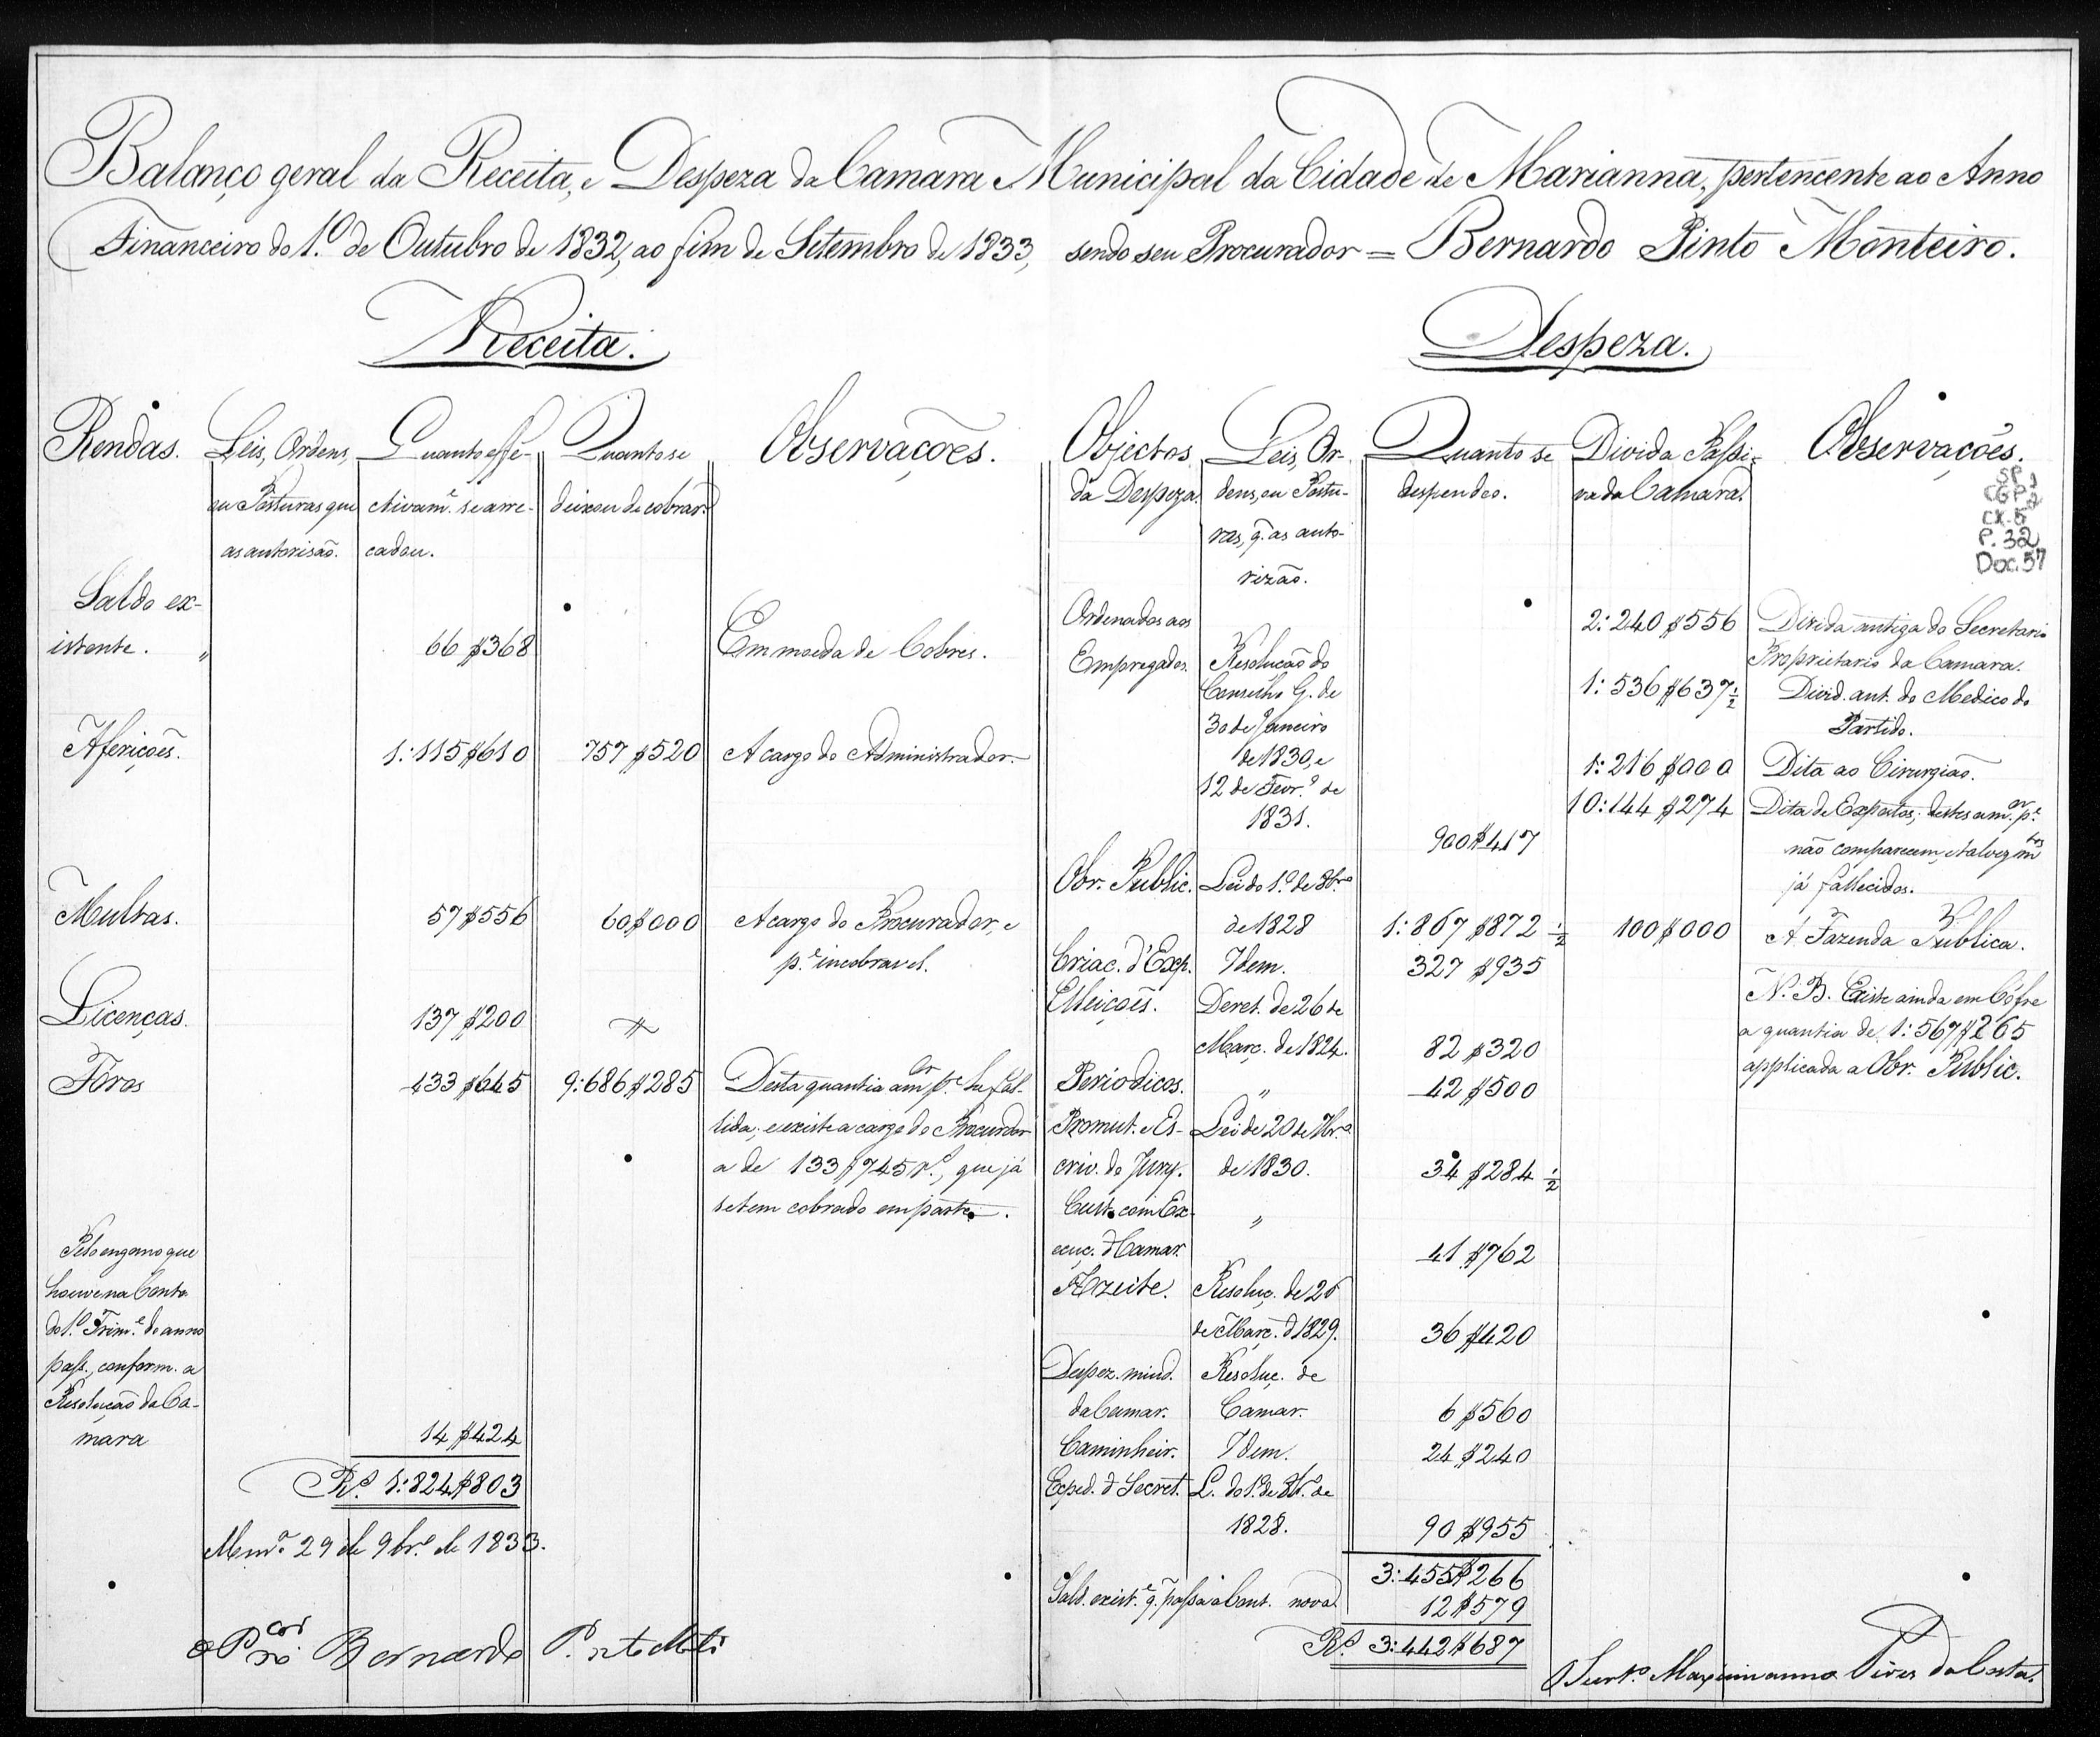 Balanço geral da Receita, e Despeza da Camara Municipal da Cidade de Marianna, pertencente ao Anno
Financeiro do 1.º de Outubro de 1832, ao fim de Setembro de 1833, sendo seu Procurador = Bernardo Pinto Monteiro.
Receita.
Rendas. Leis, Ordens, Quanto effe- Quanto se Observações.
ou Posturas que ctivam.e se arre- deixou de cobrar.
as autorisão. cadou.
Saldo ex-
istente. " 66$368 Em moeda de Cobres.
Afericões. 1:115$610 757$520 A cargo do Administrador.
Multas. 57$556 60$000 A cargo do Procurador, e
p.e incobravel.
Licenças. 137$200 "
Fóros 433$645 9:686$285 Desta quantia a m.or p.e he fal-
lida; e existe a cargo do Procurador
a de 133$745 r.s, que já
se tem cobrado em parte.
Pelo engano que
houve na Conta
do 1.º Trim.e do anno
pass., conform. a
Resolucão da Ca-
mara 14$424
R.s 1:824$803
Mar.na 29 de 9br.o de 1833.
o Pro.cor Bernardo Pinto Mont.ro
Despeza.
Objectos Leis, Or- Quanto se Divida Passi- Observações.
da Despeza. dens, ou Postu- despendeo. va da Camara.
ras, q. as auto-
rizão.
SP 1
CGP 2
CX. 5
P. 32
Doc. 57
Ordenados aos 2:240$556 Divida antiga do Secretario
Empregados. Resolucão do Proprietario da Camara.
Conselho G. de 1:536$637 1/2 Divid. ant. do Medico do
30 de Janeiro Partido.
de 1830, e 1:216$000 Dita ao Cirurgião.
12 de Fevr.o de 10:144$274 Dita de Expostos; destes a m.or p.e
1831. 900$417 não comparecem, e talvez m.tos
já fallecidos.
Obr. Public. Lei do 1.º de 8br.o
de 1828 1:867$872 1/2 100$000 A Fazenda Publica.
Criac. d'Exp. Idem. 327$935
Elleiçoẽs. Decret. de 26 de N. B. Existe ainda em Cófre
Març. de 1824. 82$320 a quantia de 1:567$265
Periodicos. " 42$500 applicada a Obr. Public.
Promut. e Es- Lei de 20 de 7br.o
criv. do Jury. de 1830. 34$284 1/2
Cust. com Ex- "
ecuç. d'Camar. 41$762
Azeite. Resoluç. de 26
de Març. d 1829. 36$420
Despez. miud. Resoluç. de
da Camar. Camar. 6$560
Caminheir. Idem. 24$240
Exped. d Secret. L. do 1.º de 8br.o de
1828. 90$955
3:455$266
Sald. exist.e q. passa á Cont. nova 12$579
R.s 3:442$687
O Secr.o Maximianno Pires da Costa.